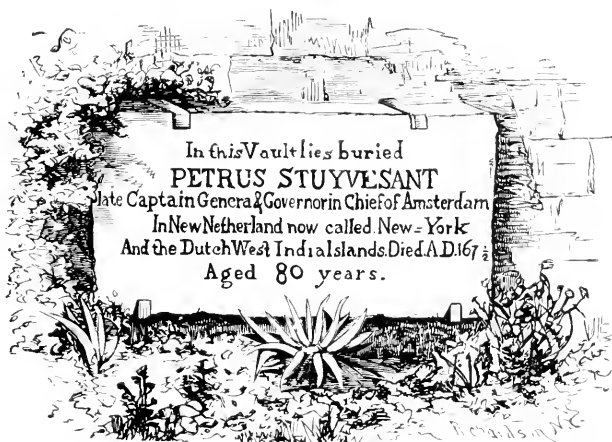 In this Vault lies buried
PETRUS STUYVESANT
late Captain Genera & Governor in Chief of Amsterdam
In New Netherland now called New=York
And the Dutch West India Islands. Died. A.D. 167 1/2
Aged 80 years.